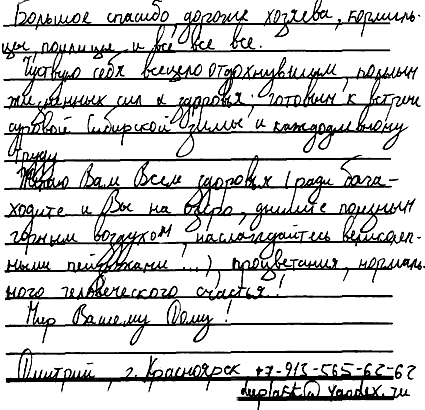 Большое спасибо, дорогие хозяева, кормиль-
цы, поилицы и все все все.
Чуствую себя всецело отдохнувшим, полным
жизненных сил и здоровья, готовым к встречи
суровой Сибирской зимы и каждодневному
труду
Желаю Вам Всем здоровья (ради бога-
ходите и Вы на озеро, дышите полезным
горным воздухом, наслаждайтесь великолеп-
ными пейзажами ...), процветания, нормаль-
ного человеческого счастья!
Мир Вашему Дому!
Дмитрий, г. Красноярск +7-913-565-62-62
@yandex.ru